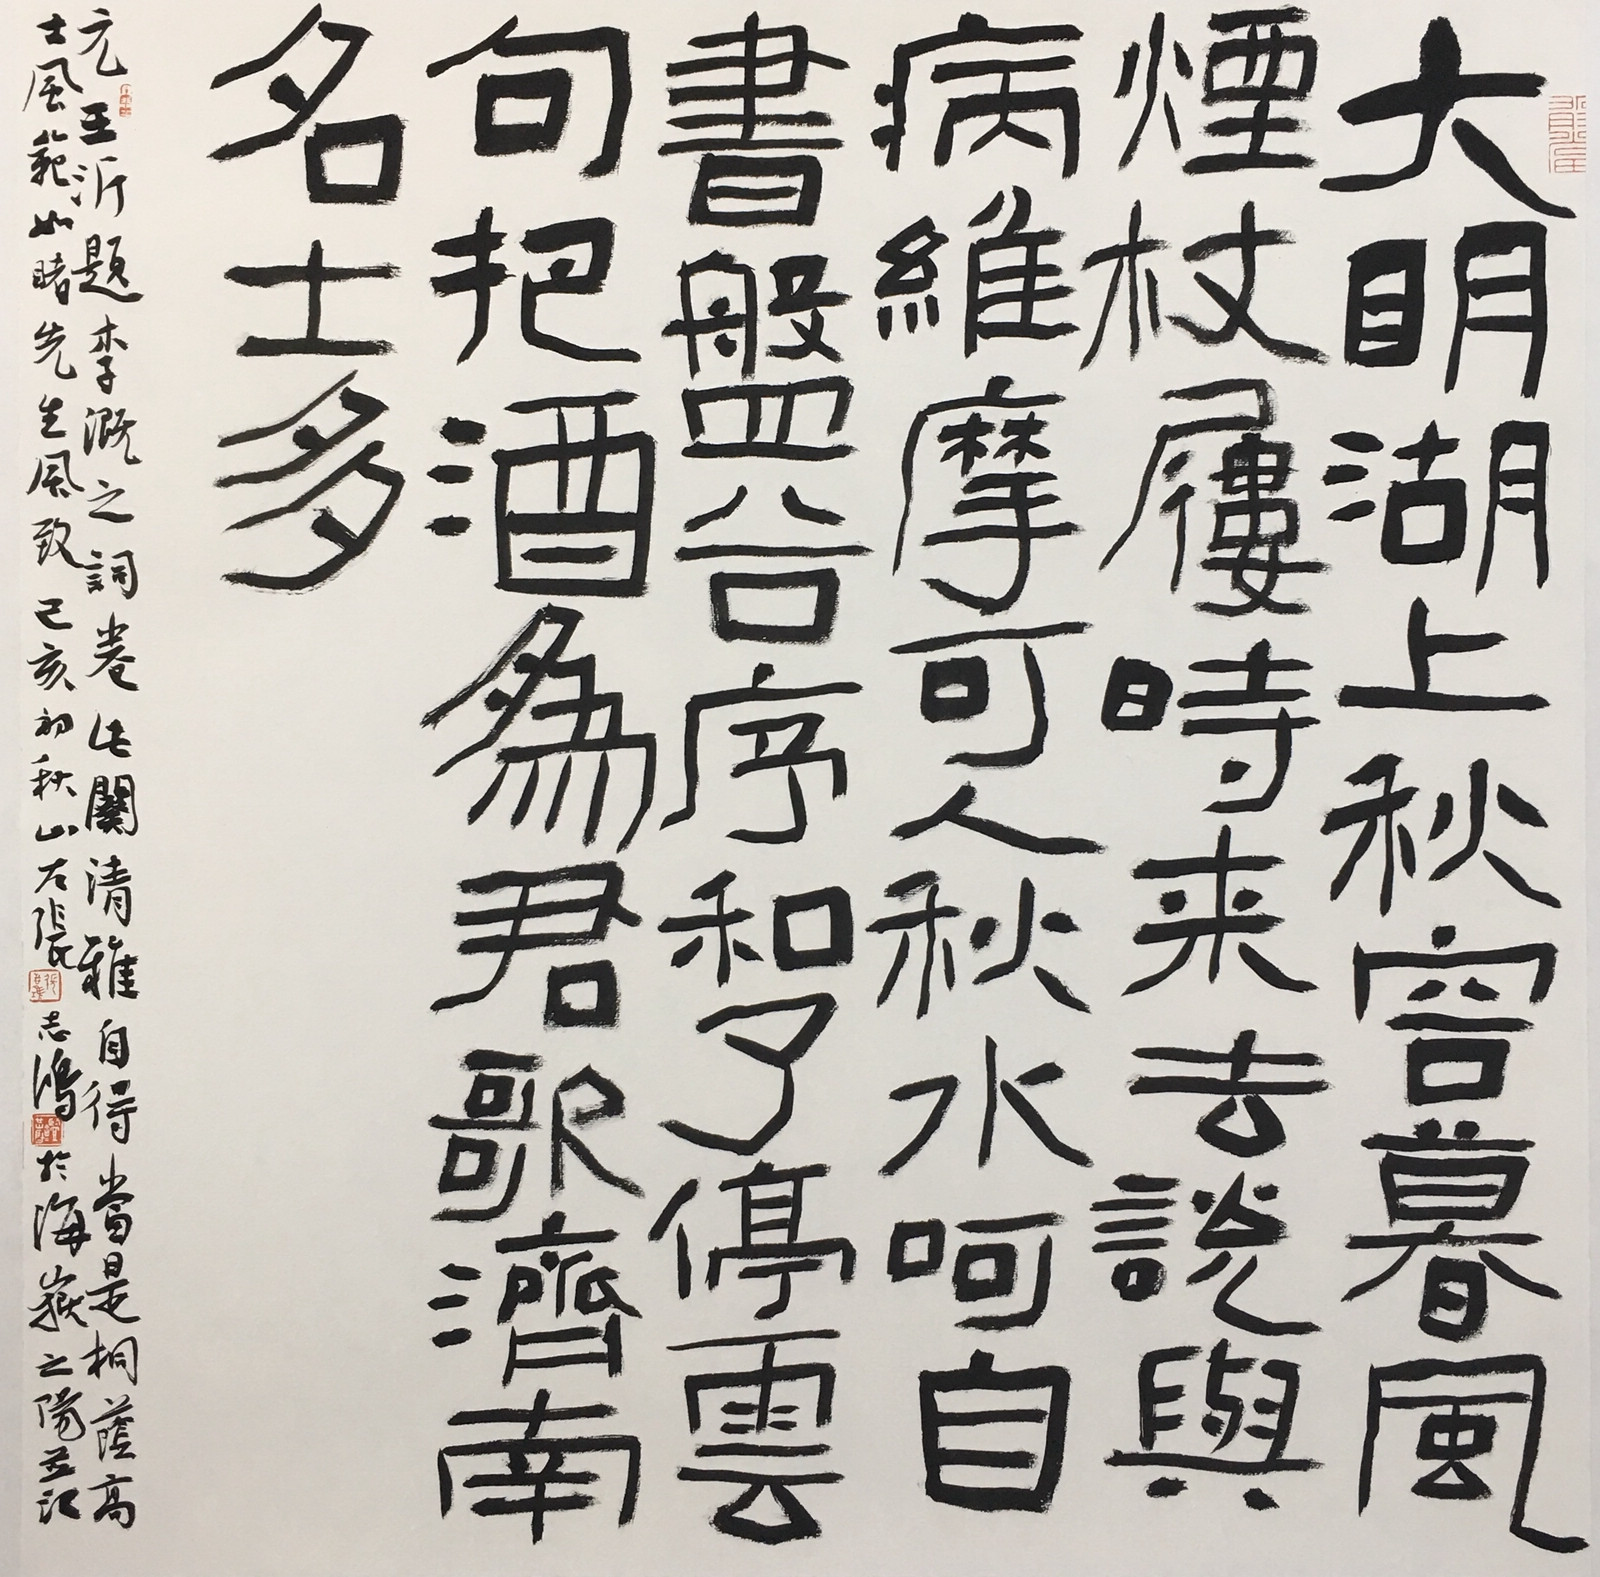 大明湖上秋容暮風
煙杖屨時来去說與
病維摩可人秋水呵自
書盤谷序和了停雲
句把酒為君歌濟南
名士多
元王沂題李溉之詞卷此闋清雅自得當是桐蔭高
士風範如睹先生風致己亥初秋山左張志鴻於海嶽之陽並記